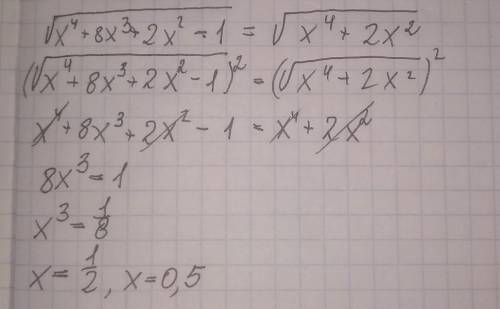 √(x⁴ + 8x³ + 2x² - 1) = √(x⁴ + 2x²)
(√(x⁴ + 8x³ + 2x² - 1))² = (√(x⁴ + 2x²))²
x⁴ + 8x³ + 2x² - 1 = x⁴ + 2x²
8x³ = 1
x³ = 1/8
x = 1/2, x = 0,5